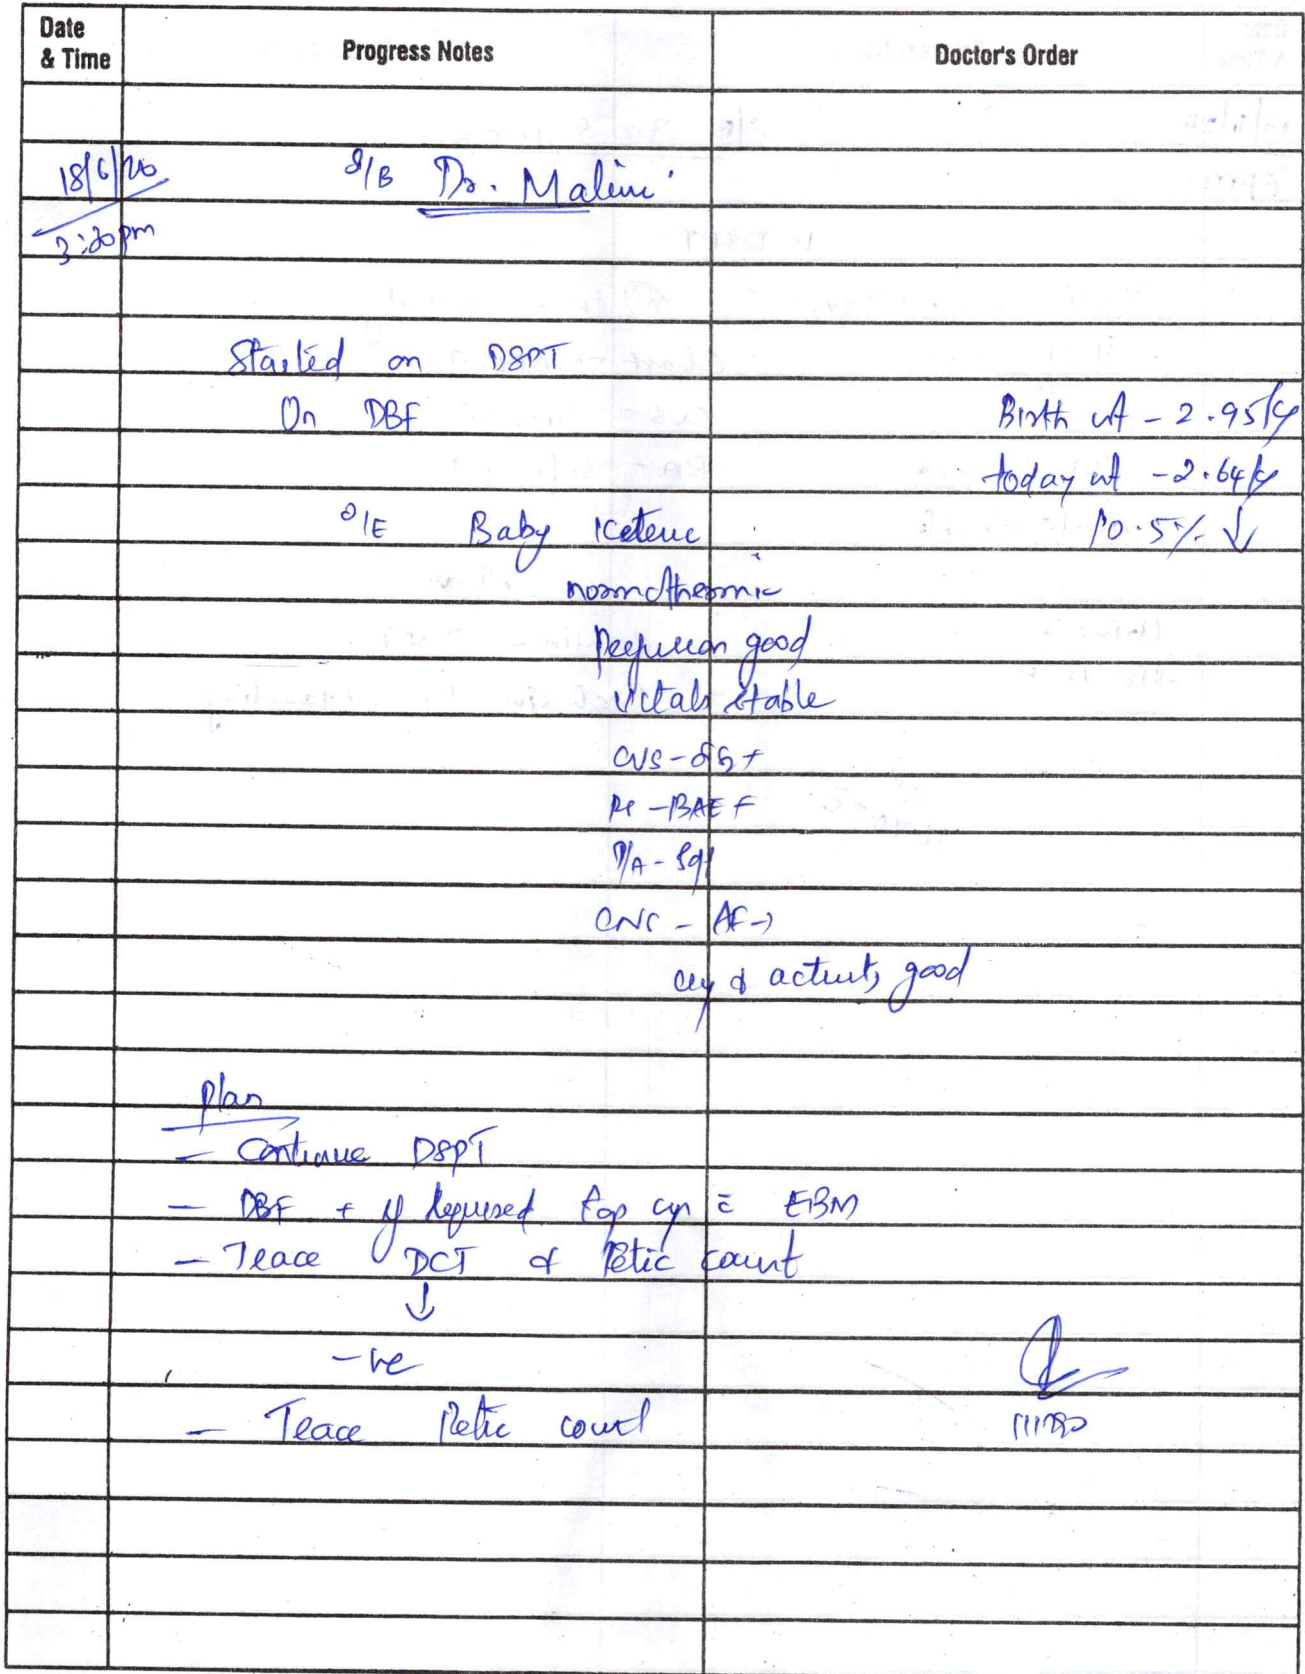 Date & Time Progress Notes Doctor's Order
18/6/26 S/B Dr. Malini
3:20pm
Started on DSPT
On DBF Birth wt - 2.95kg
today wt - 2.64kg
O/E Baby Icteric 10.5% ↓
normothermic
Perfusion good
vitals stable
CVS - S1S2 +
RS - BAE +
P/A - soft
CNS - AF →
cry & activity good
Plan
- Continue DSPT
- DBF + if required top up c̄ EBM
- Trace DCT & Retic count
↓
-ve
- Trace Retic count